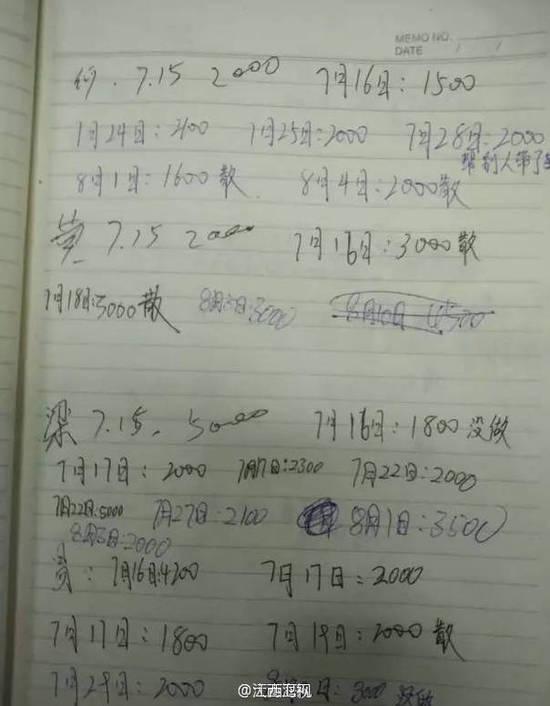 MEMO NO.
DATE / /
7.15 2000 7月16日:1500
1月24日:2100 1月25日:2000 7月28日:2000
帮别人带了
8月1日:1600散 8月4日:2000散
7.15 2000 7月16日:3000散
7月18日:3000散 8月3日:3000 8月10日 4500
梁 7.15. 5000 7月16日:1800没做
7月17日:2000 7月17日:2300 7月22日:2000
7月22日:5000 7月27日:2100 8月1日:3500
8月3日:2000
员:7月16日:4200 7月17日:2000
7月17日:1800 7月19日:2000散
7月29日:2000 3000 没做
@江西卫视